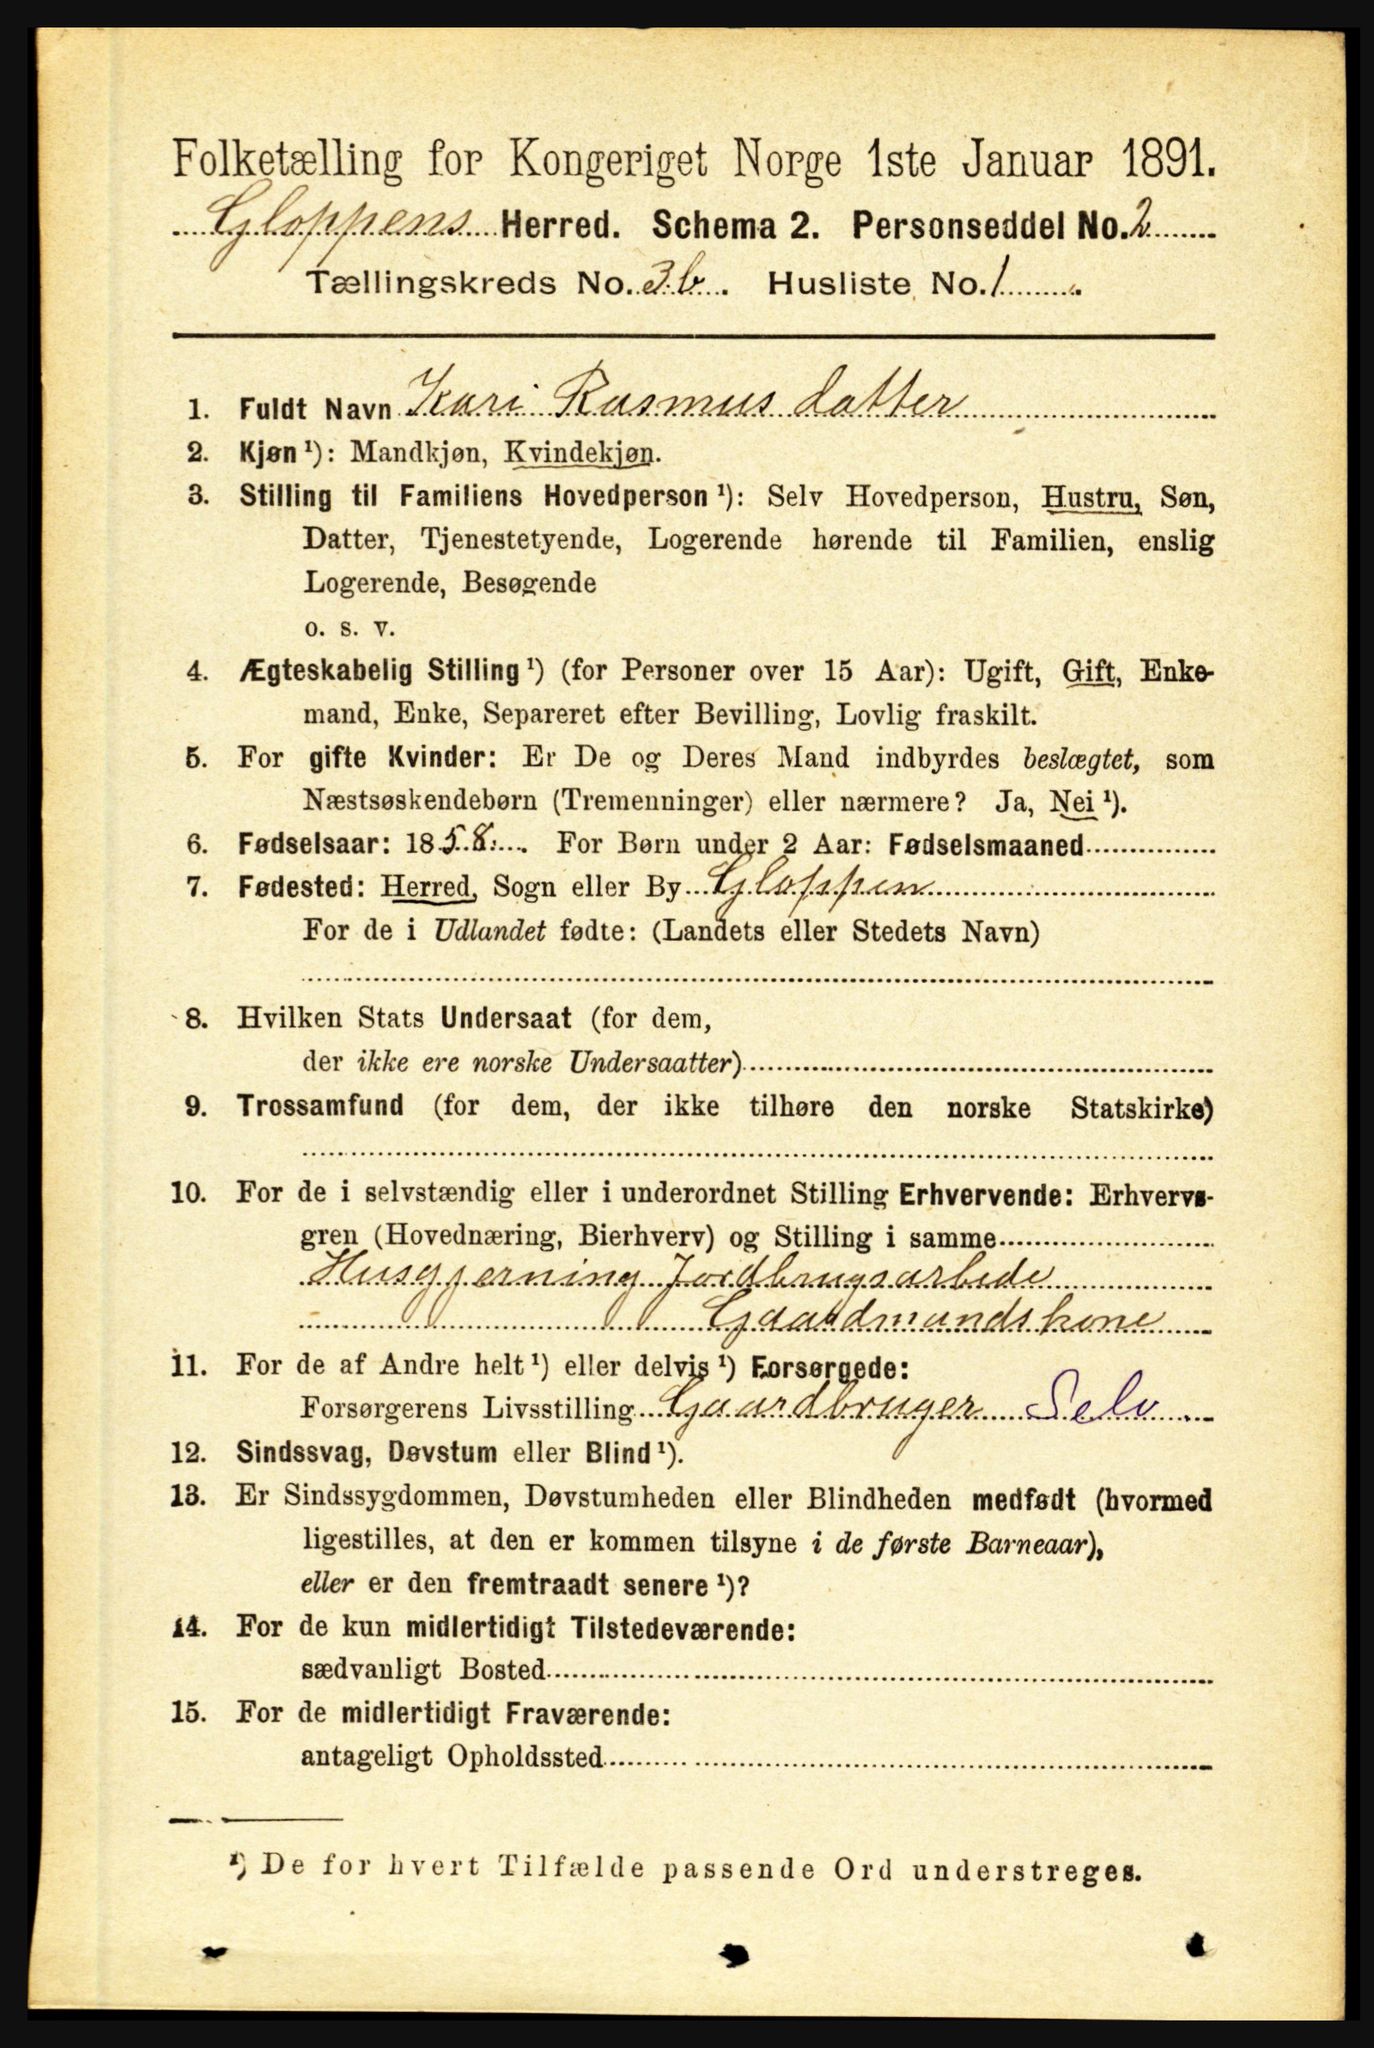 Folketælling for Kongeriget Norge 1ste Januar 1891.
Gloppens Herred. Schema 2. Personseddel No. 2
Tællingskreds No. 3b. Husliste No. 1.
1. Fuldt Navn Kari Rasmus datter
2. Kjøn ¹): Mandkjøn, Kvindekjøn.
3. Stilling til Familiens Hovedperson ¹): Selv Hovedperson, Hustru, Søn,
Datter, Tjenestetyende, Logerende hørende til Familien, enslig
Logerende, Besøgende
o. s. v.
4. Ægteskabelig Stilling ¹) (for Personer over 15 Aar): Ugift, Gift, Enke-
mand, Enke, Separeret efter Bevilling, Lovlig fraskilt.
5. For gifte Kvinder: Er De og Deres Mand indbyrdes beslægtet, som
Næstsøskendebørn (Tremenninger) eller nærmere? Ja, Nei ¹).
6. Fødselsaar: 1858. For Børn under 2 Aar: Fødselsmaaned
7. Fødested: Herred, Sogn eller By Gloppen
For de i Udlandet fødte: (Landets eller Stedets Navn)
8. Hvilken Stats Undersaat (for dem,
der ikke ere norske Undersaatter)
9. Trossamfund (for dem, der ikke tilhøre den norske Statskirke)
10. For de i selvstændig eller i underordnet Stilling Erhvervende: Erhvervs-
gren (Hovednæring, Bierhverv) og Stilling i samme
Husgjerning Jordbrugsarbede
Gaardmandskone
11. For de af Andre helt ¹) eller delvis ¹) Forsørgede:
Forsørgerens Livsstilling Gaardbruger Selv
12. Sindssvag, Døvstum eller Blind ¹).
13. Er Sindssygdommen, Døvstumheden eller Blindheden medfødt (hvormed
ligestilles, at den er kommen tilsyne i de første Barneaar),
eller er den fremtraadt senere ¹)?
14. For de kun midlertidigt Tilstedeværende:
sædvanligt Bosted
15. For de midlertidigt Fraværende:
antageligt Opholdssted
¹) De for hvert Tilfælde passende Ord understreges.